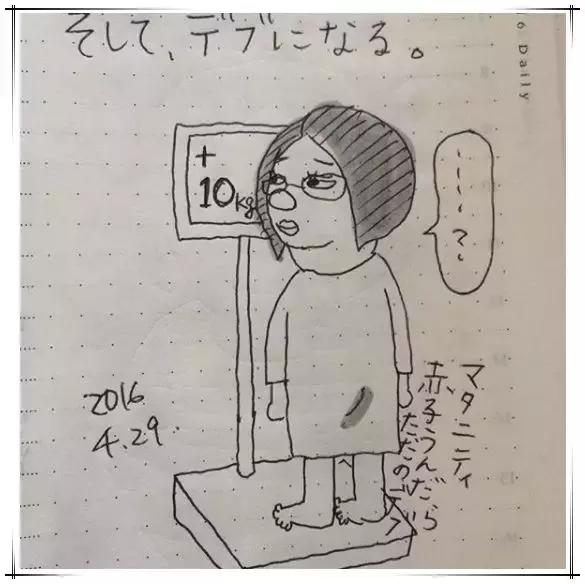 そして、デブになる。
6 Daily
+
10kg
マタニティ
赤子うんだら
ただのデブ
2016
4.29.